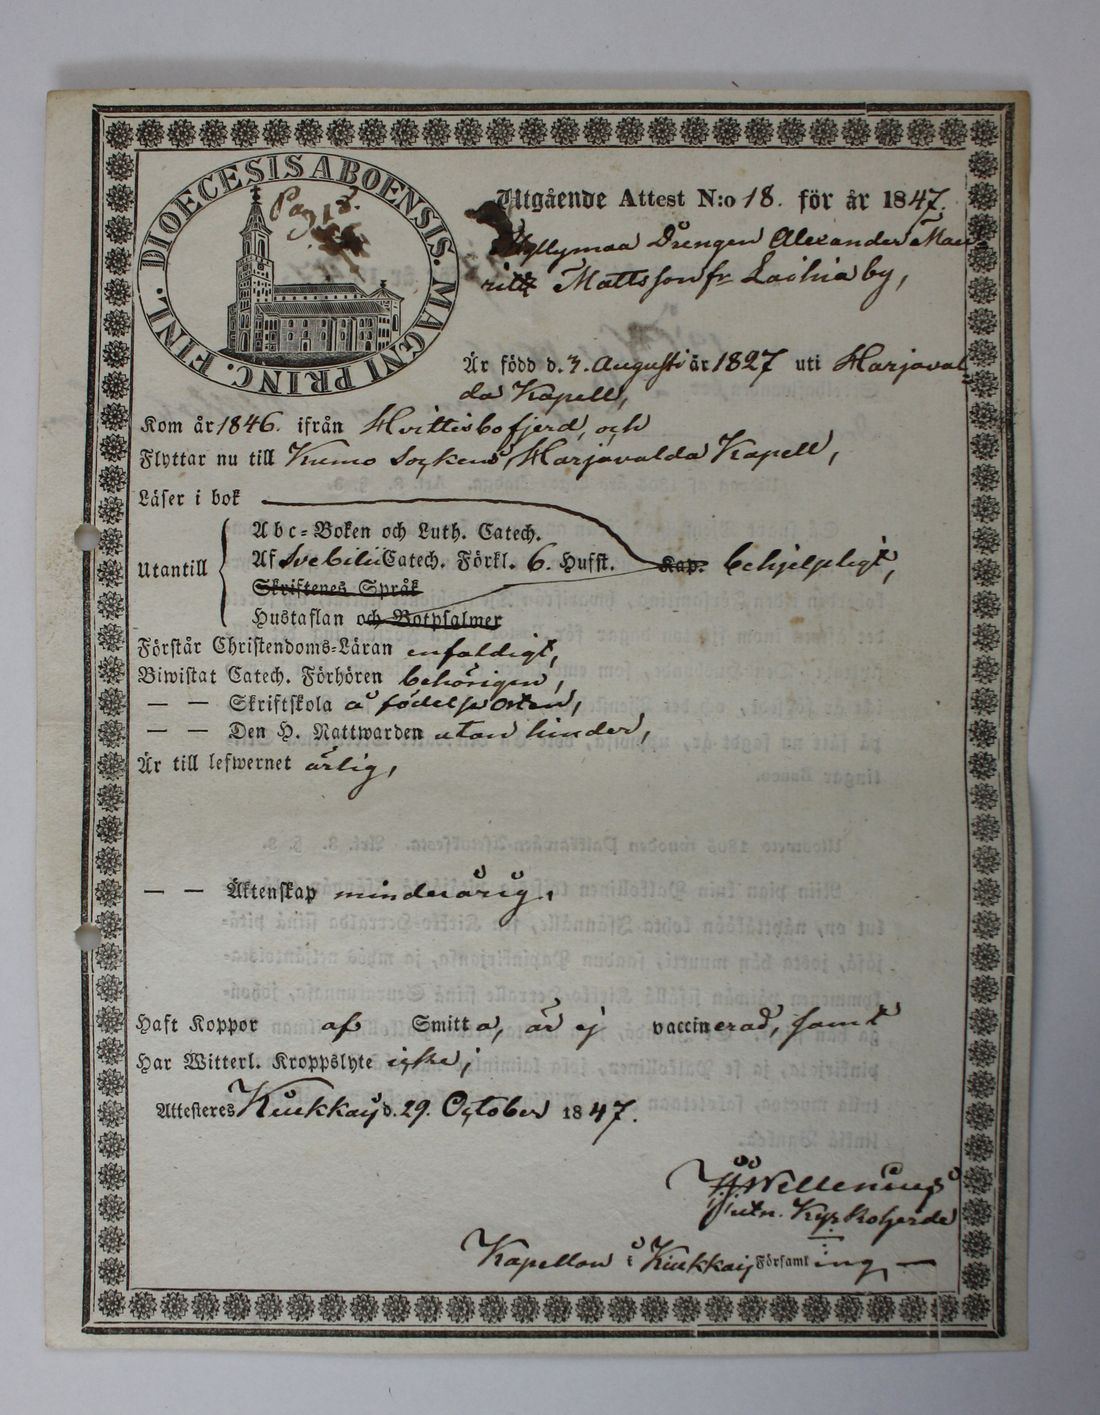 DIOECESIS ABOENSIS. MAGNI PRINC. FINL.
Pag 18.
Utgående Attest N:o 18. för år 1847.
Myllymaa Drengen Alexander Mau-
ritz Mattsson fr Laihia by,
Är född d. 7. Augusti år 1827 uti Harjaval-
da Kapell,
Kom år 1846. ifrån Hvittisbofjerd, och
Flyttar nu till Kumo Sockens, Harjavalda Kapell,
Läser i bok
Abc-Boken och Luth. Catech.
Utantill Af Svebilii Catech. Förkl. 6. Hufst. Kap. behjelpligt,
Skriftenes Språk
Hustaflan och Botpsalmer
Förstår Christendoms-Läran enfaldigt,
Biwistat Catech. Förhören behörigen,
— — Skriftskola å födelseorten,
— — Den H. Nattwarden utan hinder,
Är till lefwernet ärlig,
— — Äktenskap minderårig,
Haft Koppor af Smitta, är ej vaccinerad, samt
Har Witterl. Kroppslyte icke;
Attesteres Kiukkais d. 29. October 1847.
Wellenius
utn. Kyrkoherde
Kapellan i Kiukkais Församling, —